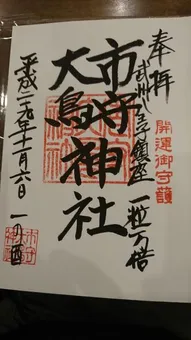 奉拝
開運御守護
武州八王子鎮座 一粒万倍
市守神社
大鳥
平成二十九年十一月六日 一の酉
市守
神社